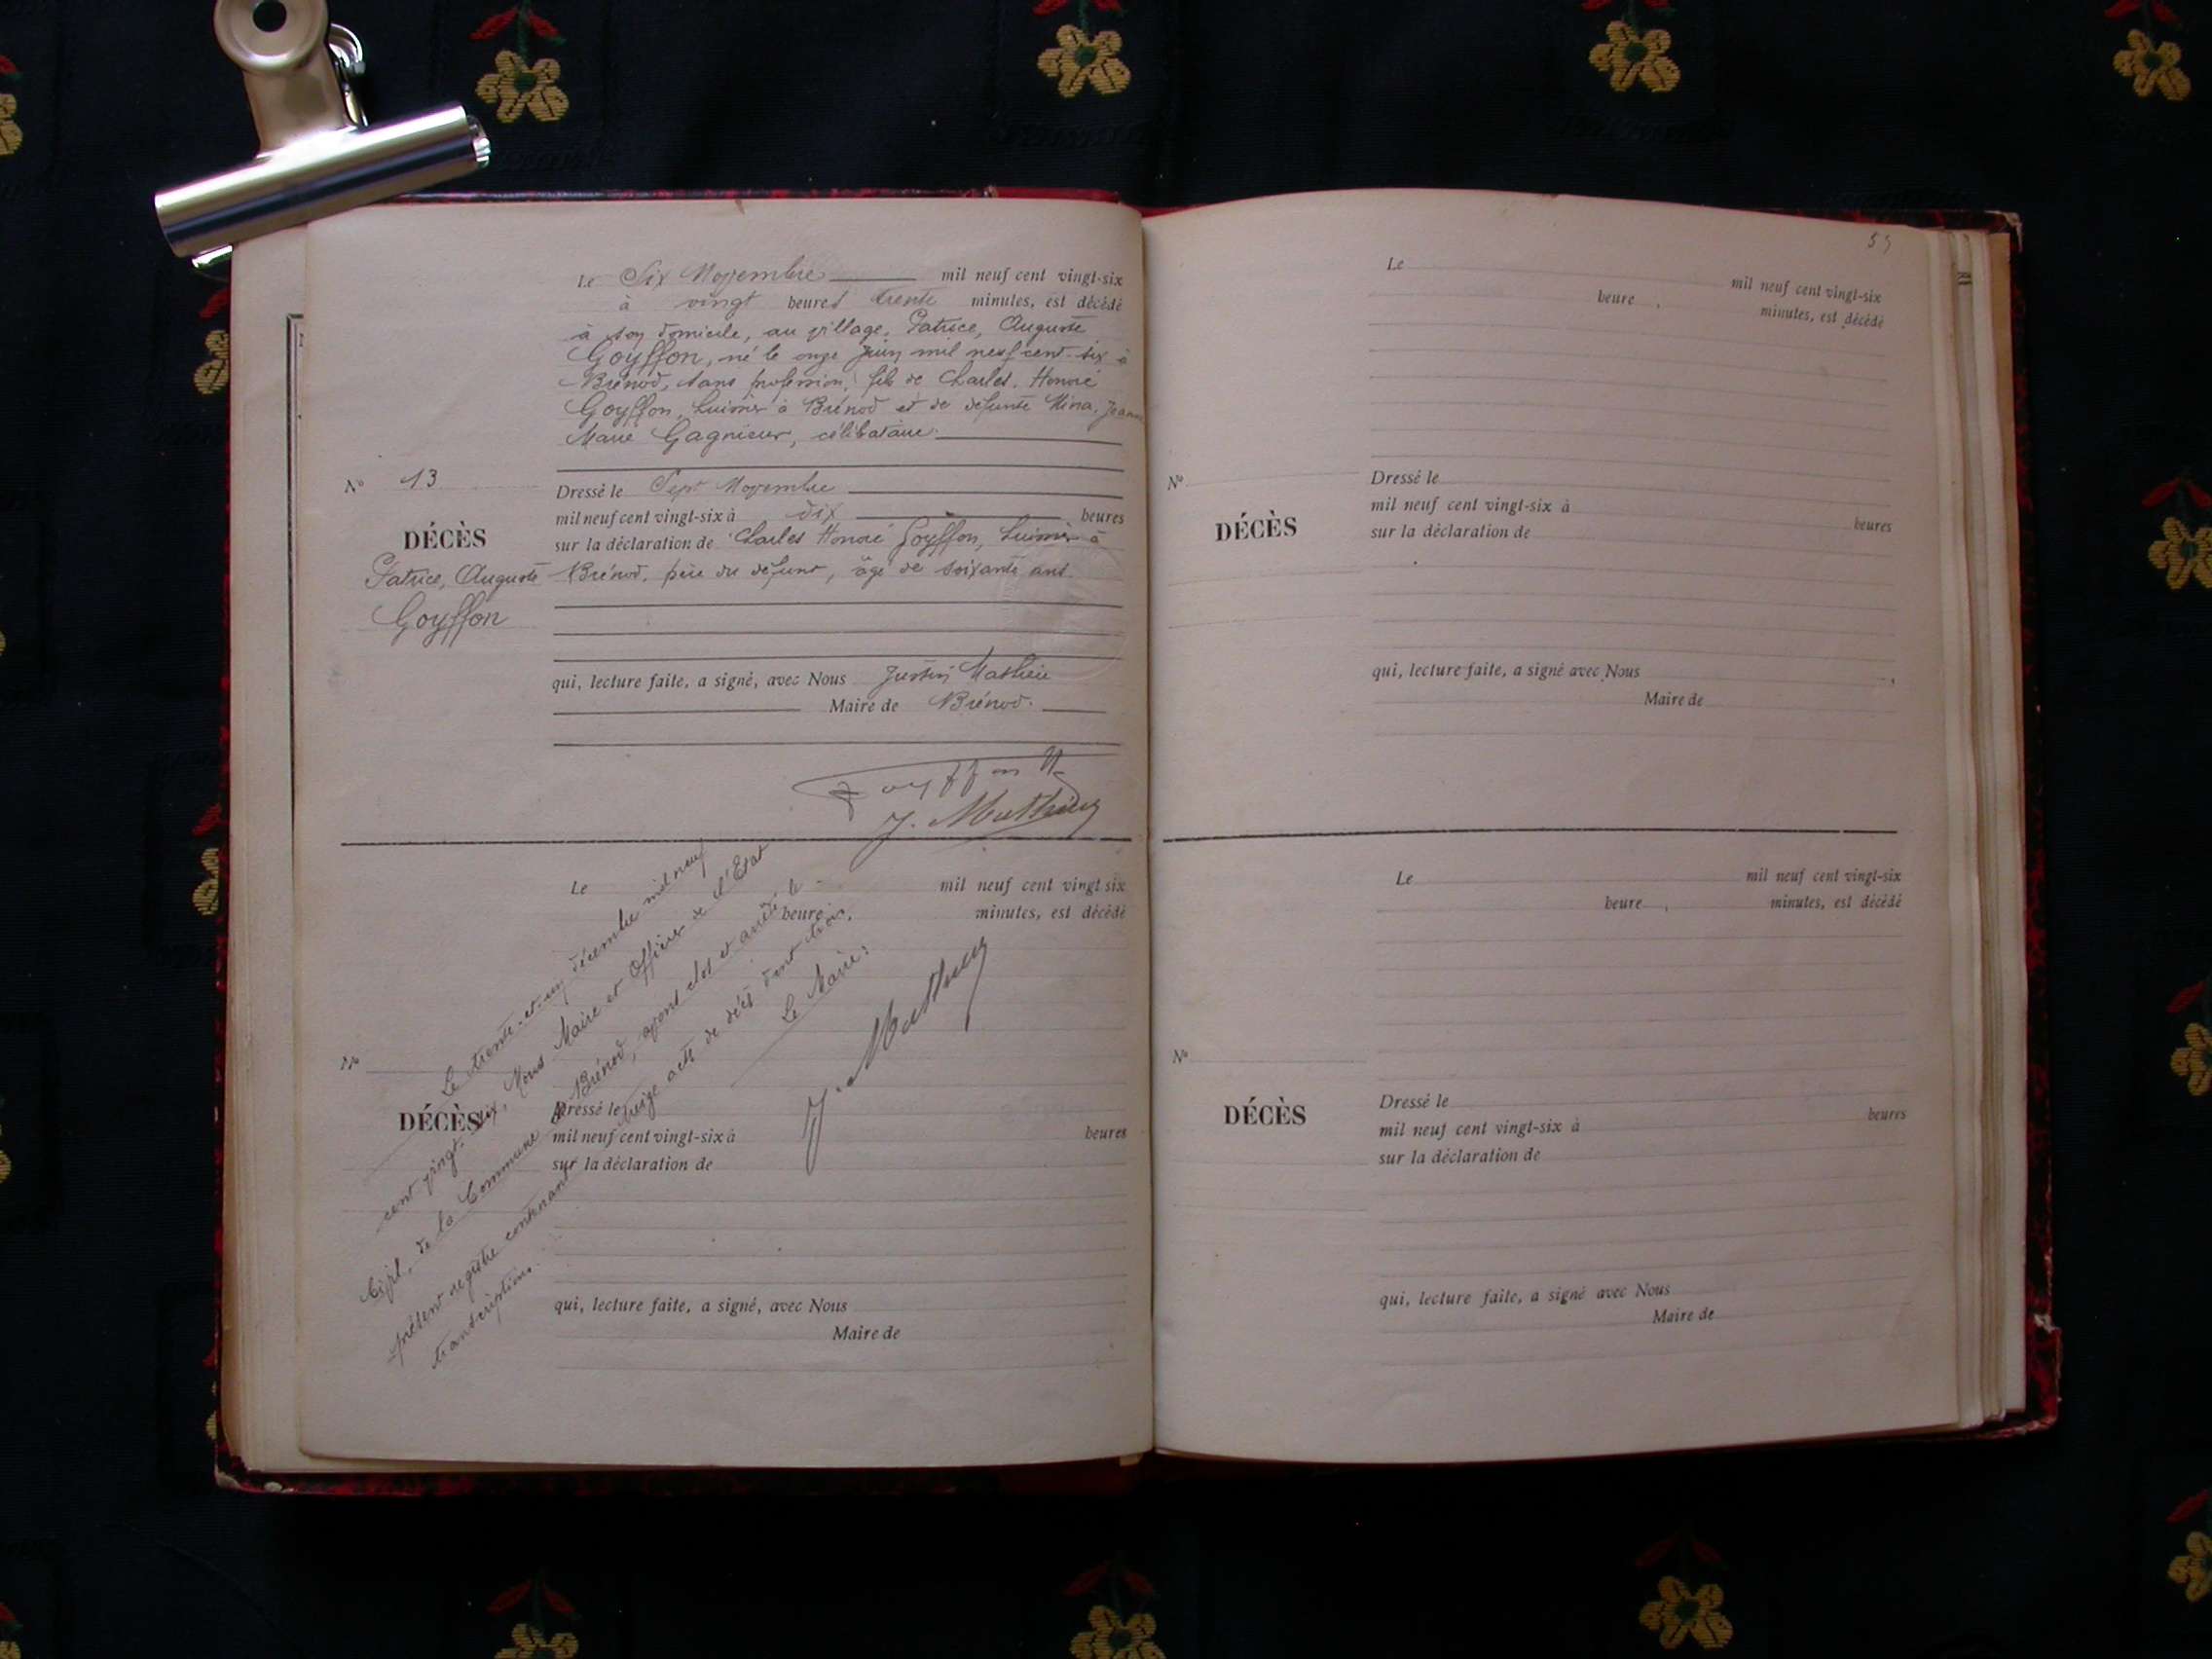 Le Six Novembre mil neuf cent vingt-six
à vingt heures trente minutes, est décédé
à son domicile, au village, Patrice, Auguste
Goyffon, né le onze Juin mil neuf cent-six à
Brénod, sans profession, fils de Charles, Honoré
Goyffon, à Brénod et de défunte Nina, Jeanne
Marie Gagnieur, célibataire.
N° 13
DÉCÈS
Patrice, Auguste
Goyffon
Dressé le Sept Novembre
mil neuf cent vingt-six à dix heures
sur la déclaration de Charles Honoré Goyffon, à
Brénod, père du défunt, âgé de soixante ans.
qui, lecture faite, a signé, avec Nous Justin Mathieu
Maire de Brénod.
Goyffon H
J. Mathieu
Le mil neuf cent vingt six
heure minutes, est décédé
N°
DÉCÈS
Dressé le
mil neuf cent vingt-six à heures
sur la déclaration de
qui, lecture faite, a signé, avec Nous
Maire de
Le trente-et-un décembre mil neuf
cent vingt-six, Nous Maire et Officier de l'État
Civil, de la Commune de Brénod, avons clos et arrêté le
présent registre contenant treize actes de décès dont trois
transcriptions.
Le Maire:
J. Mathieu
Le mil neuf cent vingt-six
heure minutes, est décédé
N°
DÉCÈS
Dressé le
mil neuf cent vingt-six à heures
sur la déclaration de
qui, lecture faite, a signé avec Nous
Maire de
Le mil neuf cent vingt-six
heure minutes, est décédé
N°
DÉCÈS
Dressé le
mil neuf cent vingt-six à heures
sur la déclaration de
qui, lecture faite, a signé avec Nous
Maire de